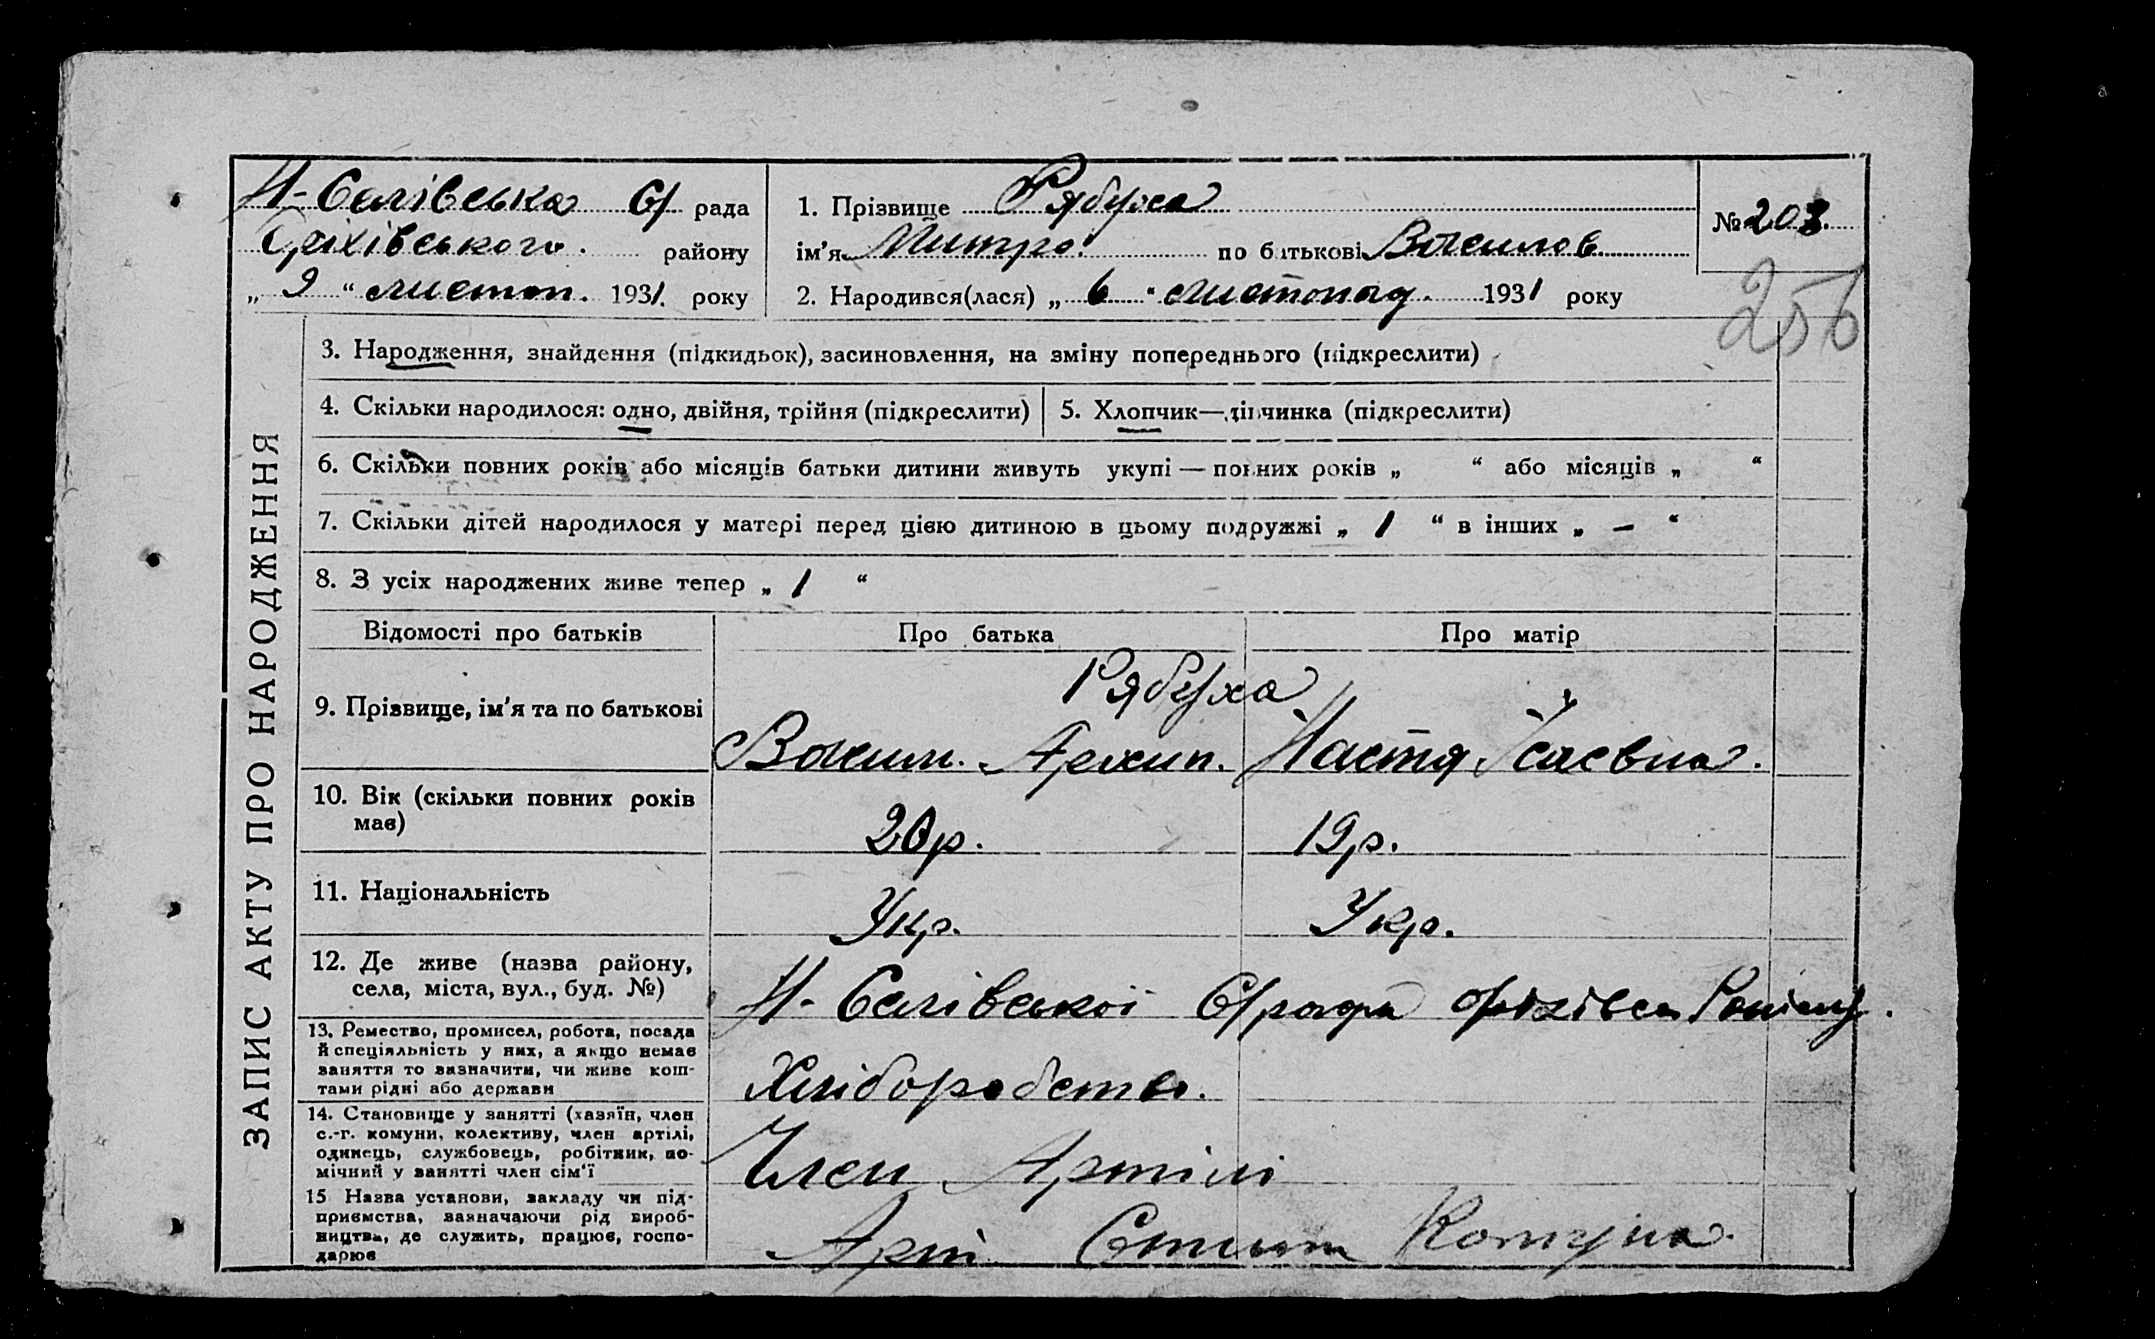 Н-Селівська С/ рада
Оріхівського. району
„ 9 “ листоп. 1931. року
1. Прізвище Рябуха
ім'я Митро. по батькові Васильов.
2. Народився(лася) „ 6 “ листопад. 1931 року
№ 203.
256
ЗАПИС АКТУ ПРО НАРОДЖЕННЯ
3. Народження, знайдення (підкидьок), засиновлення, на зміну попереднього (підкреслити)
4. Скільки народилося: одно, двійня, трійня (підкреслити)
5. Хлопчик—дівчинка (підкреслити)
6. Скільки повних років або місяців батьки дитини живуть укупі — повних років „ “ або місяців „ “
7. Скільки дітей народилося у матері перед цією дитиною в цьому подружжі „ 1 “ в інших „ – “
8. З усіх народжених живе тепер „ 1 “
Відомості про батьків
Про батька
Про матір
9. Прізвище, ім'я та по батькові
Рябуха
Васил. Архип.
Настя Ісаєвна.
10. Вік (скільки повних років
має)
20р.
19р.
11. Національність
Укр.
Укр.
12. Де живе (назва району,
села, міста, вул., буд. №)
Н-Селівської С/ради Оріхівськ Району.
13. Ремество, промисел, робота, посада
й спеціяльність у них, а якщо немає
заняття то зазначити, чи живе кош-
тами рідні або держави
Хліборобство.
14. Становище у занятті (хазяїн, член
с.-г. комуни, колективу, член артілі,
одинець, службовець, робітник, по-
мічний у занятті член сім'ї
Член Артілі
15 Назва установи, закладу чи під-
приємства, зазначаючи рід вироб-
ництва, де служить, працює, госпо-
дарює
Арті Комуна.